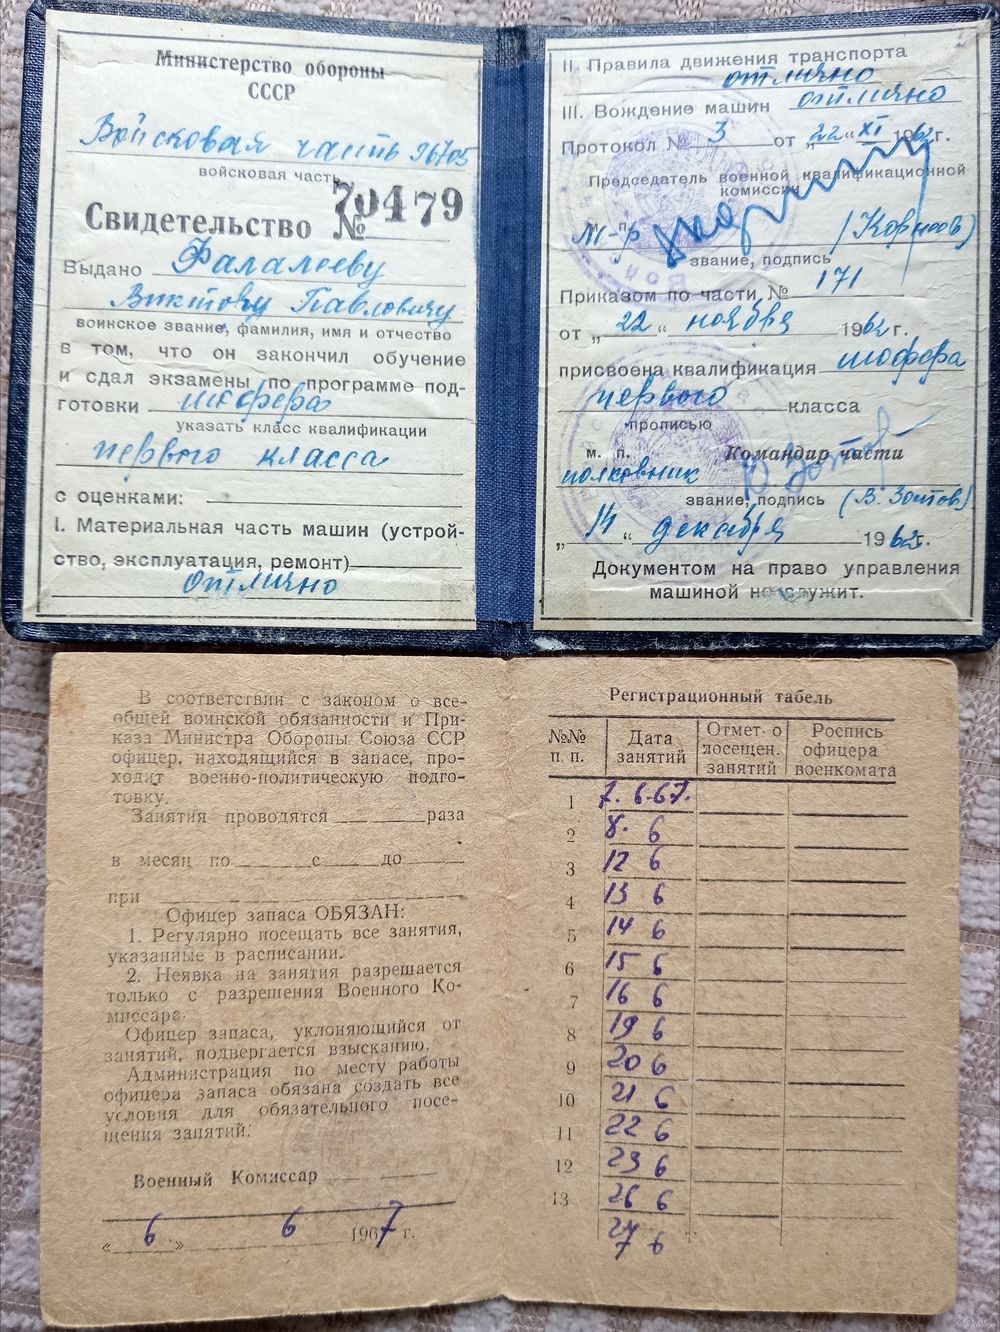 Министерство обороны
СССР
Войсковая часть 96705
войсковая часть
Свидетельство № 70479
Выдано Фалалееву
Виктору Павловичу
воинское звание, фамилия, имя и отчество
в том, что он закончил обучение
и сдал экзамены по программе под-
готовки шофера
указать класс квалификации
первого класса
с оценками:
I. Материальная часть машин (устрой-
ство, эксплуатация, ремонт)
отлично
II. Правила движения транспорта
отлично
III. Вождение машин отлично
Протокол № 3 от „22“ XI 1962г.
Председатель военной квалификационной
комиссии
м. п.
м-р (Корнеев)
звание, подпись
Приказом по части № 171
от „22“ ноября 1962г.
присвоена квалификация шофера
первого класса
прописью
м. п. Командир части
полковник
звание, подпись (В. Зотов)
„14“ декабря 1962г.
Документом на право управления
машиной не служит.
В соответствии с законом о все-
общей воинской обязанности и При-
каза Министра Обороны Союза ССР
офицер, находящийся в запасе, про-
ходит военно-политическую подго-
товку.
Занятия проводятся раза
в месяц по с до
при
Офицер запаса ОБЯЗАН:
1. Регулярно посещать все занятия,
указанные в расписании.
2. Неявка на занятия разрешается
только с разрешения Военного Ко-
миссара.
Офицер запаса, уклоняющийся от
занятий, подвергается взысканию.
Администрация по месту работы
офицера запаса обязана создать все
условия для обязательного посе-
щения занятий.
Военный Комиссар
«6» 6 1967 г.
Регистрационный табель
№№ п. п. Дата занятий Отмет. о посещен. занятий Роспись офицера военкомата
1 7. 6-67.
2 8. 6
3 12 6
4 13 6
5 14 6
6 15 6
7 16 6
8 19 6
9 20 6
10 21 6
11 22 6
12 23 6
13 26 6
27 6